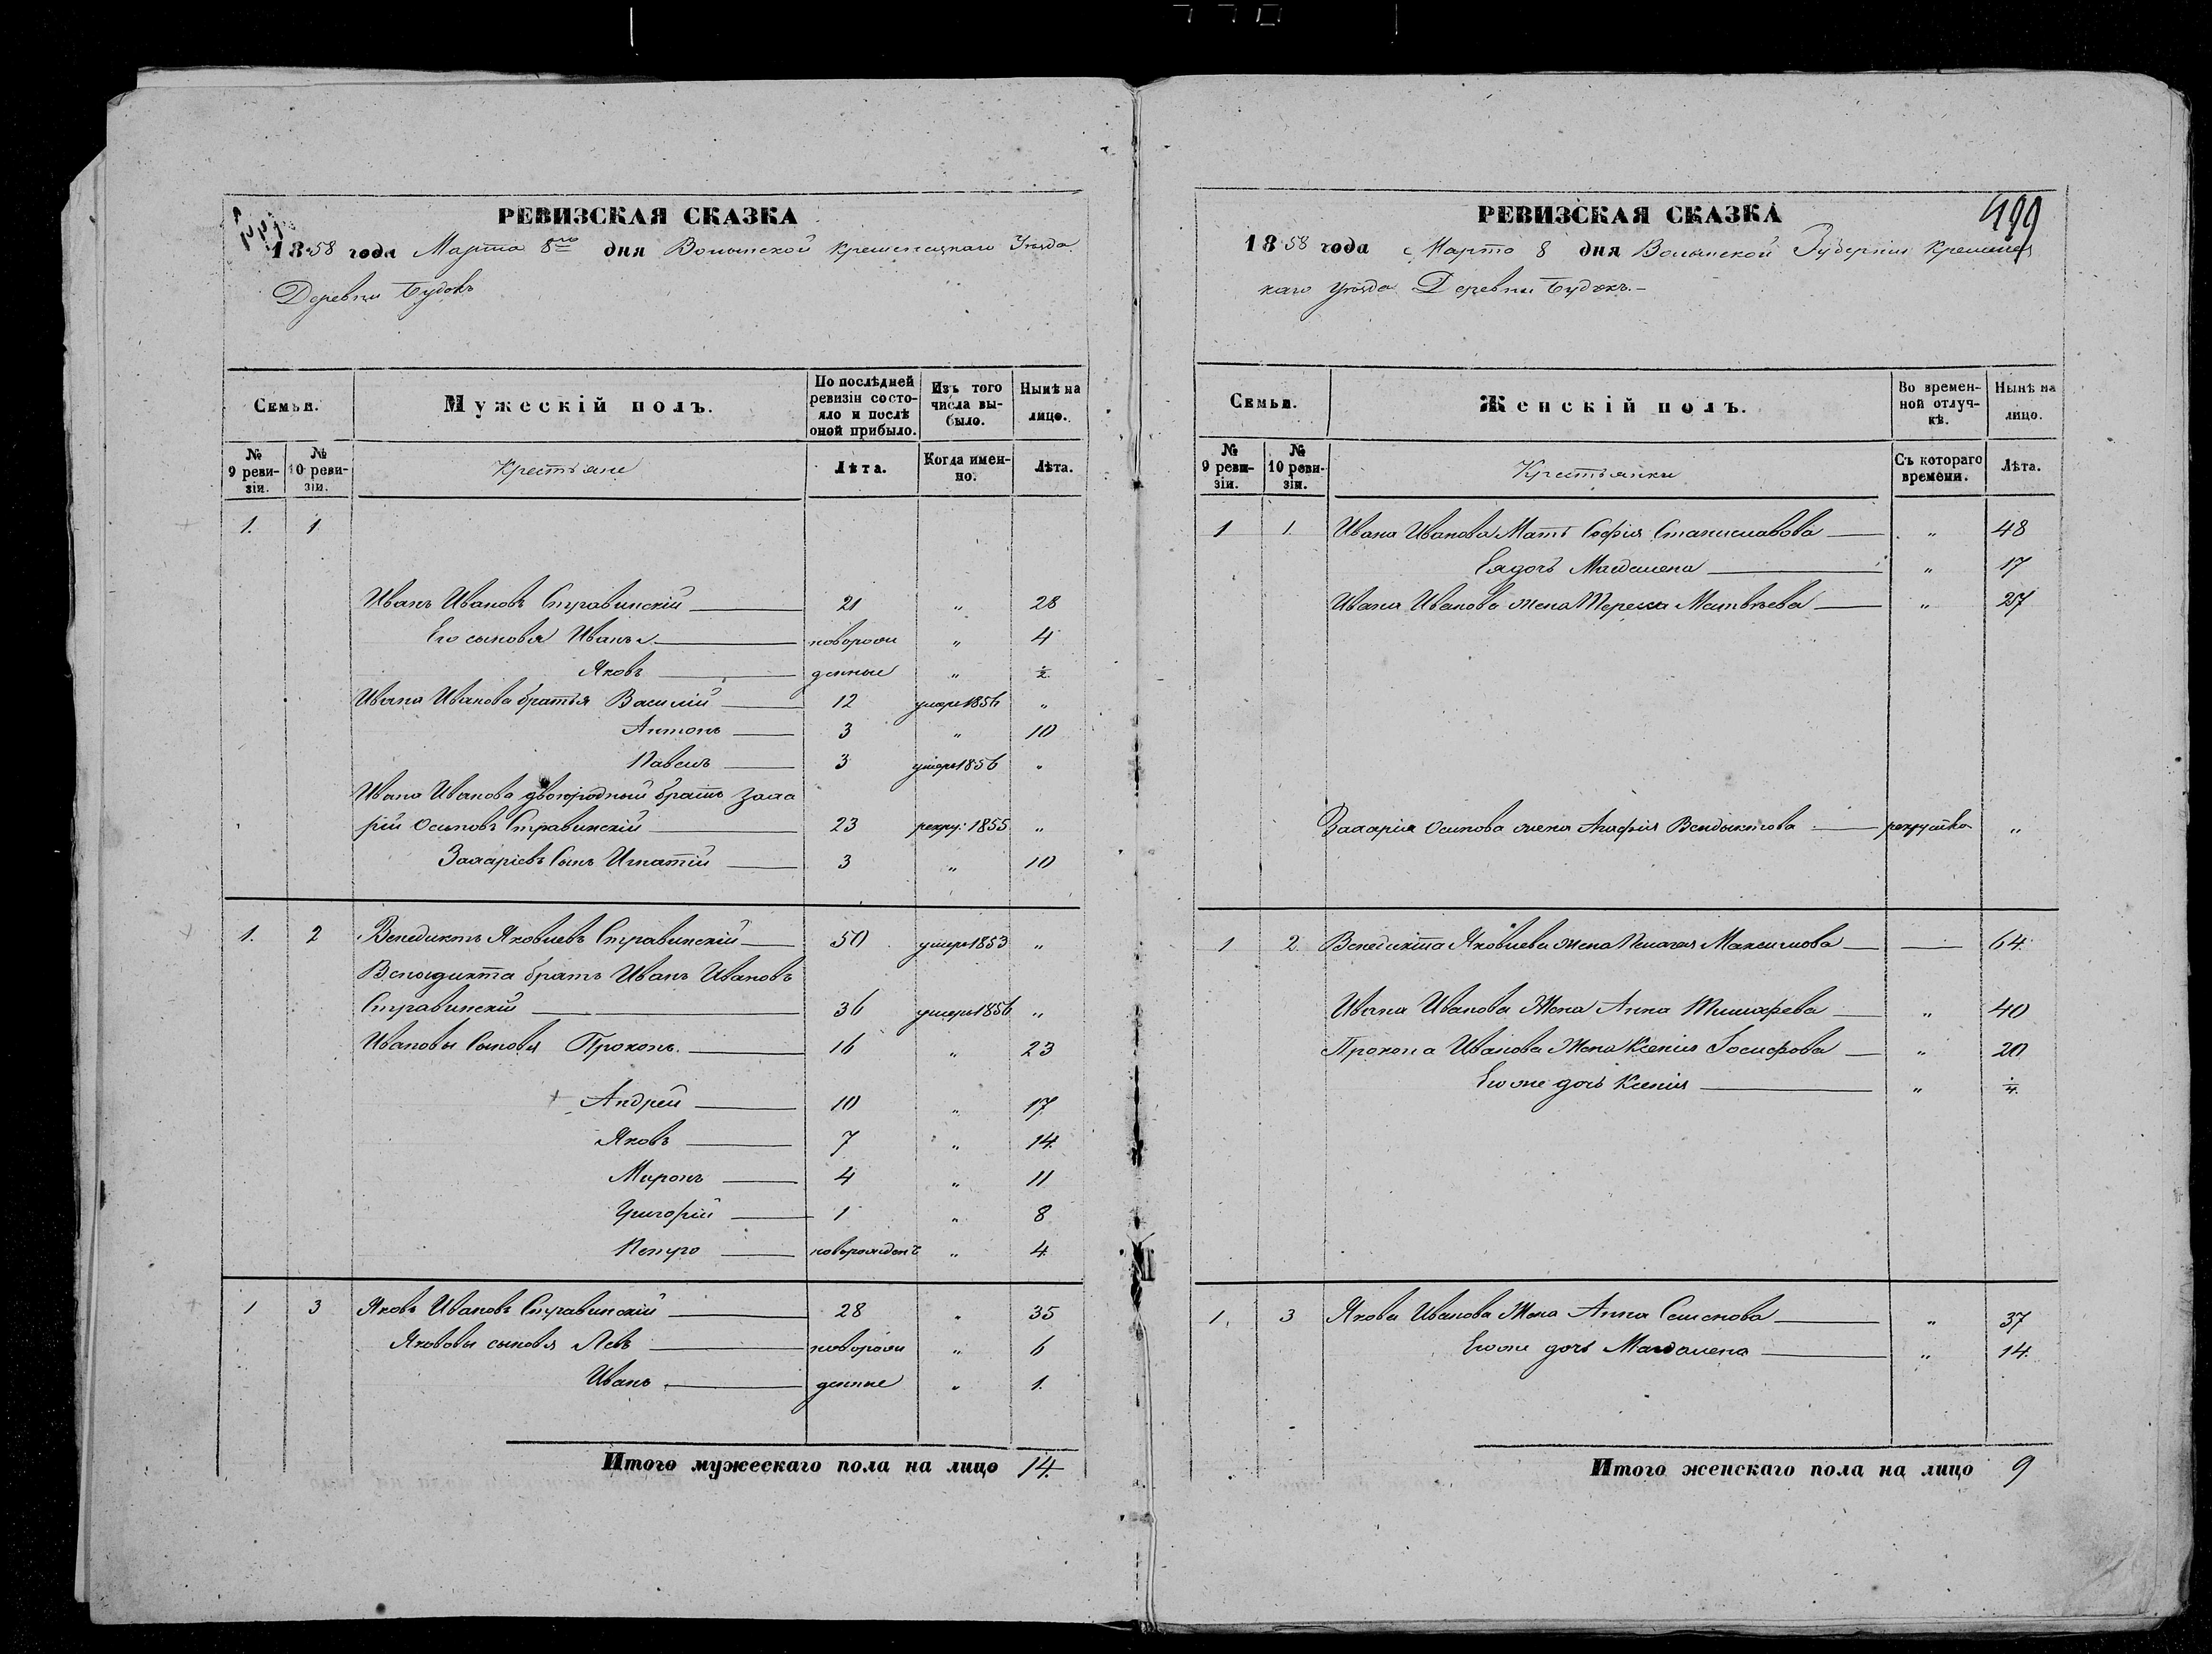 РЕВИЗСКАЯ СКАЗКА
1858 года Марта 8го дня Волынской Кременецкаго Уезда
Деревни Будокъ
Семьи.
Мужескій полъ.
По послѣдней ревизіи состояло и послѣ оной прибыло.
Изъ того числа выбыло.
Нынѣ на лицо.
№ 9 ревизіи.
№ 10 ревизіи.
Крестьяне
Лѣта.
Когда именно.
Лѣта.
1. 1
Иванъ Ивановъ Стравинскій 21 „ 28
Его сыновья Иванъ новорож „ 4
Яковъ денные „ ½
Ивана Иванова братья Василій 12 умеръ 1856 „
Антонъ 3 „ 10
Павелъ 3 умеръ 1856 „
Ивана Иванова двоюродный братъ Заха
рій Осиповъ Стравинскій 23 рекру: 1855 „
Захаріевъ Сынъ Игнатій 3 „ 10
1. 2 Венедиктъ Яковлевъ Стравинскій 50 умеръ 1853 „
Венъдикта братъ Иванъ Ивановъ
Стравинскій 36 умеръ 1856 „
Ивановы Сыновья Прокопъ. 16 „ 23
Андрей 10 „ 17
Яковъ 7 „ 14.
Миронъ 4 „ 11
Григорій 1 „ 8
Петро новорожденъ „ 4.
1 3 Яковъ Ивановъ Стравинскій 28 „ 35
Якововы сыновья Левъ новорож „ 6
Иванъ денные „ 1.
Итого мужескаго пола на лицо 14.
РЕВИЗСКАЯ СКАЗКА
199
1858 года Марта 8 дня Волынской Губерніи Кременец
каго Уѣзда Деревни Будокъ.-
Семьи.
Женскій полъ.
Во временной отлучкѣ.
Нынѣ на лицо.
№ 9 ревизіи.
№ 10 ревизіи.
Крестьянки
Съ котораго времени.
Лѣта.
1 1. Ивана Иванова Мать Софія Станиславова „ 48
Ея дочь Магдалена „ 17
Ивана Иванова жена Тереса Матвѣева „ 27
Захарія Осипова жена Агафія Вендыктова рекрутка „
1 2. Венедикта Яковлева жена Пелагея Максимова — 64.
Ивана Иванова Жена Анна „ 40
Прокопа Иванова Жена Ксенія Іосифова „ 20
Его же дочь Ксенія „ ¼.
1. 3 Якова Иванова Жена Анна Семенова „ 37
Его же дочь Магдалена „ 14.
Итого женскаго пола на лицо 9